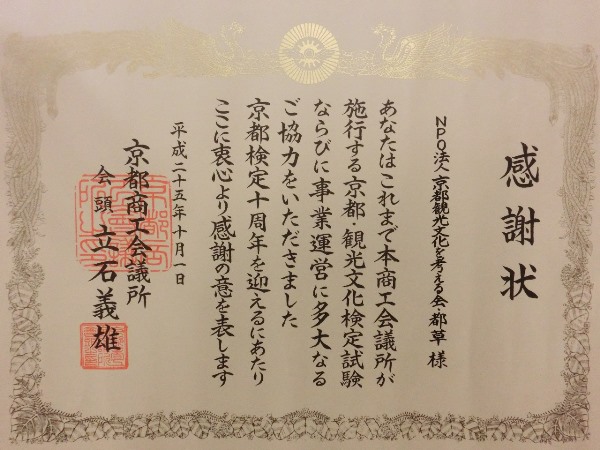 感謝状
NPO法人京都観光文化を考える会・都草 様
あなたはこれまで本商工会議所が
施行する京都 観光文化検定試験
ならびに事業運営に多大なる
ご協力をいただきました
京都検定十周年を迎えるにあたり
ここに衷心より感謝の意を表します
平成二十五年十月一日
京都商工会議所
会頭 立石義雄